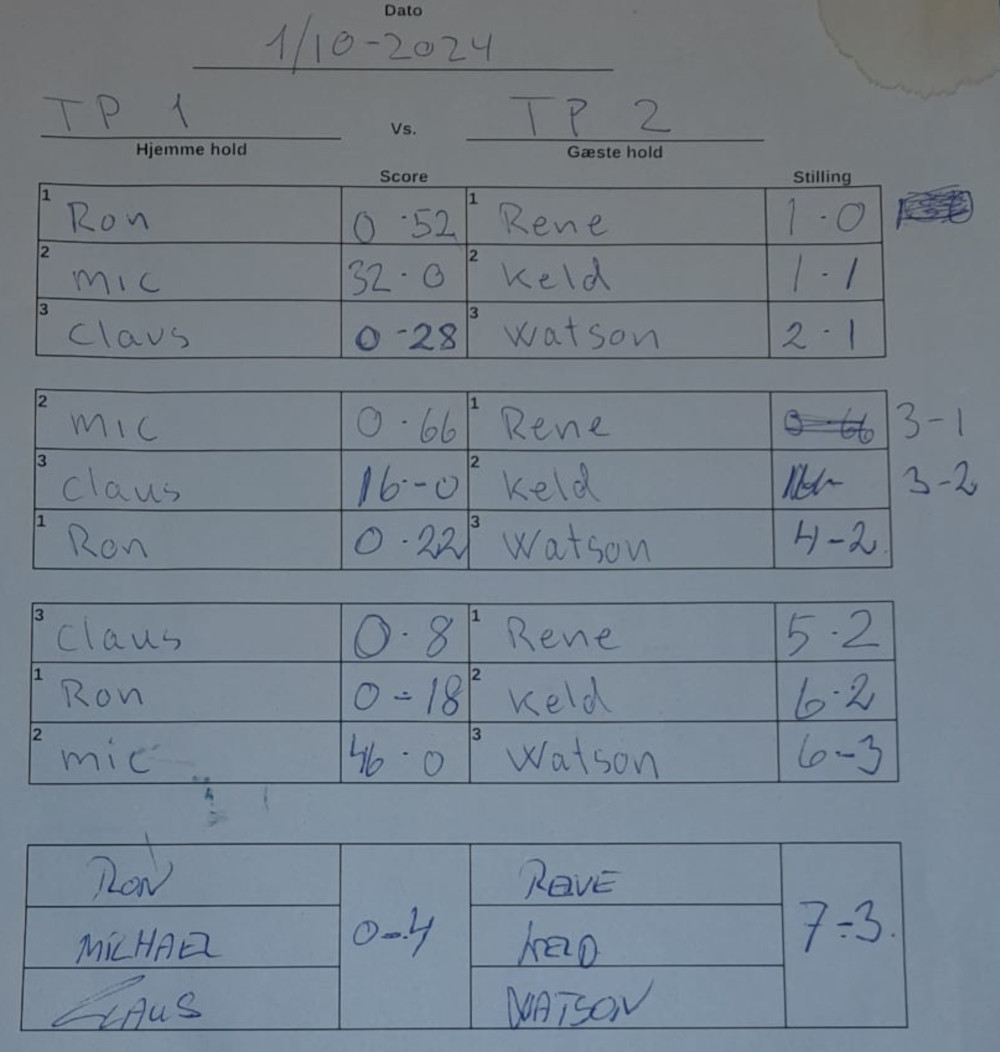 Dato
1/10-2024
TP 1 Vs. TP 2
Hjemme hold Gæste hold
Score Stilling
1 Ron 0-52 1 Rene 1-0
2 Mic 32-0 2 Keld 1-1
3 Claus 0-28 3 Watson 2-1
2 Mic 0-66 1 Rene 0-66 3-1
3 Claus 16-0 2 Keld 3-2
1 Ron 0-22 3 Watson 4-2
3 Claus 0-8 1 Rene 5-2
1 Ron 0-18 2 Keld 6-2
2 Mic 46-0 3 Watson 6-3
RON RENE
MICHAEL 0-4 KELD 7-3
CLAUS WATSON